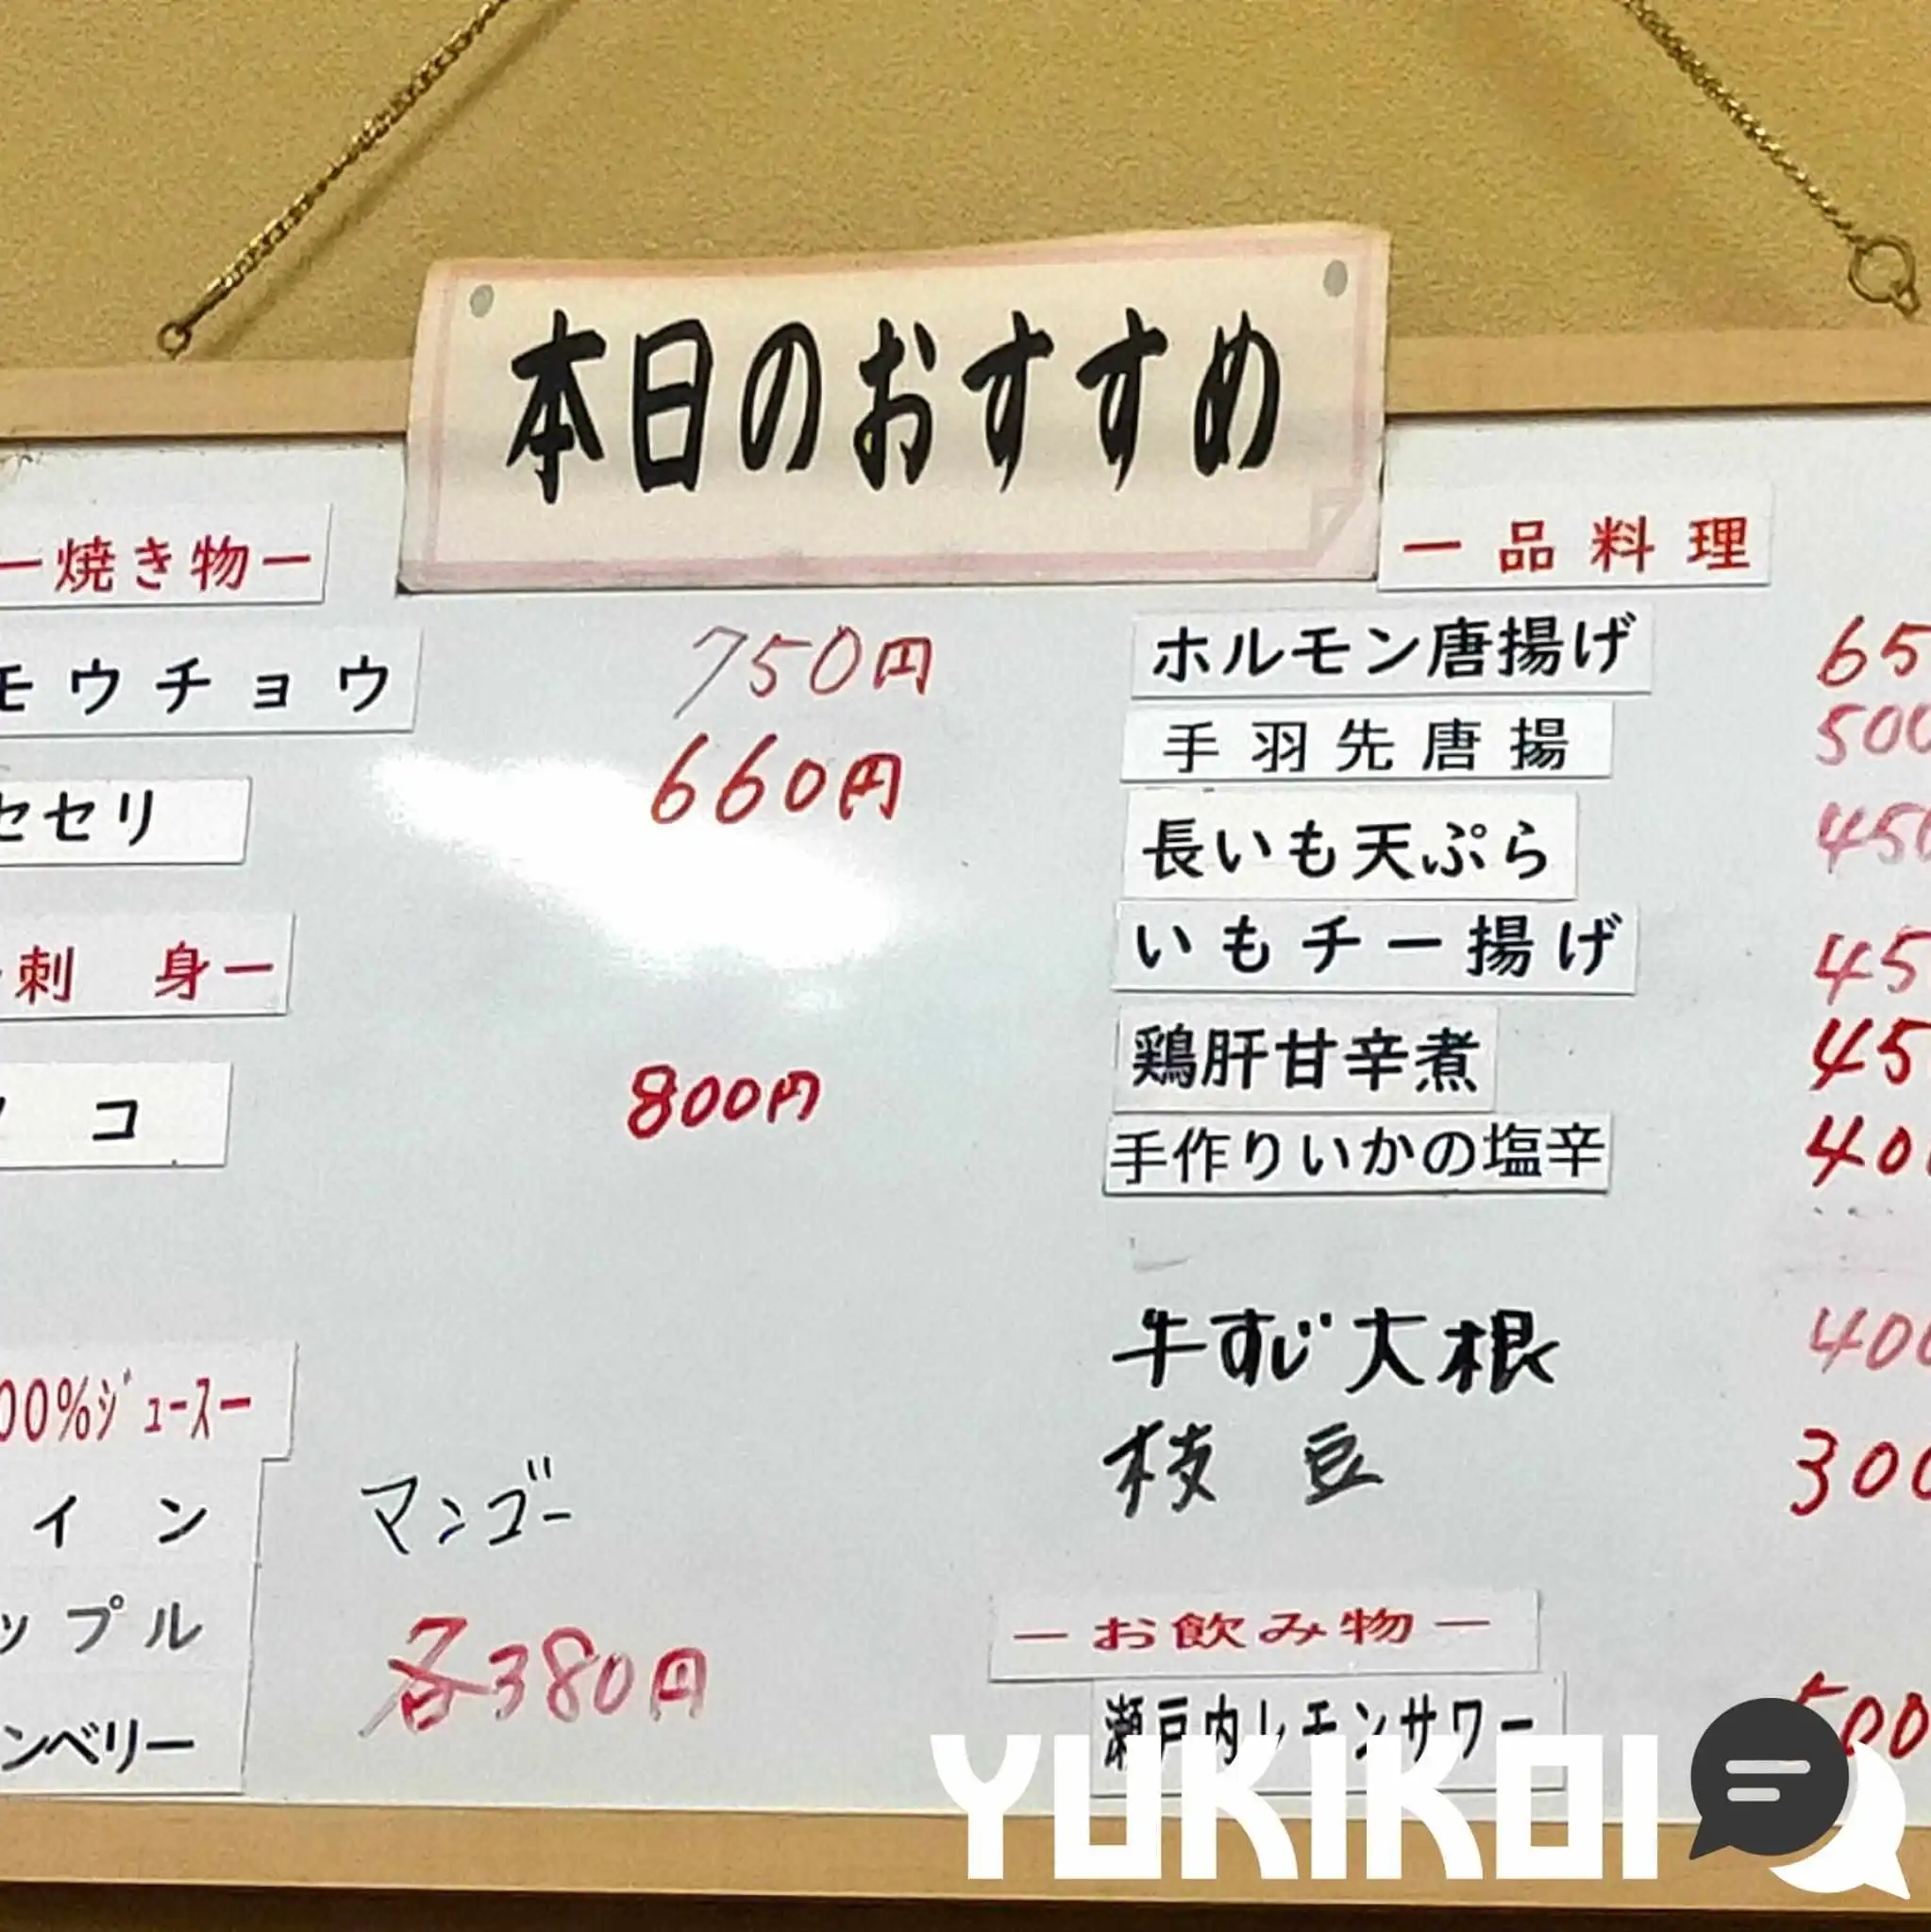 本日のおすすめ
ー焼き物ー
モウチョウ 750円
セセリ 660円
刺 身ー
コ 800円
00%ジュースー
イン マンゴー
ップル
各380円
ンベリー
一品料理
ホルモン唐揚げ 65
手羽先唐揚 500
長いも天ぷら 450
いもチー揚げ 45
鶏肝甘辛煮 45
手作りいかの塩辛 400
牛すじ大根 400
枝豆 300
ーお飲み物ー
瀬戸内レモンサワー 500
YUKIKOI